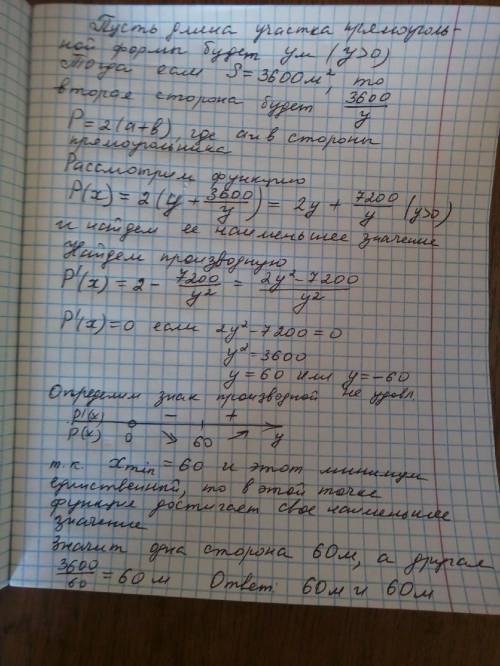 Пусть длина участка прямоуголь-
ной формы будет y м (y>0)
Тогда если S=3600м², то
вторая сторона будет 3600/y
P=2(a+b), где a и b стороны
прямоугольника
Рассмотрим функцию
P(x) = 2(y + 3600/y) = 2y + 7200/y (y>0)
и найдем ее наименьшее значение
Найдем производную
P'(x) = 2 - 7200/y² = 2y²-7200/y²
P'(x)=0 если 2y²-7200=0
y²=3600
y=60 или y=-60
не удовл.
Определим знак производной
P'(x) - +
P(x) 0 ↘ 60 ↗ y
т.к. xmin=60 и этот минимум
единственный, то в этой точке
функция достигает свое наименьшее
значение
Значит одна сторона 60м, а другая
3600/60 = 60 м Ответ: 60м и 60м